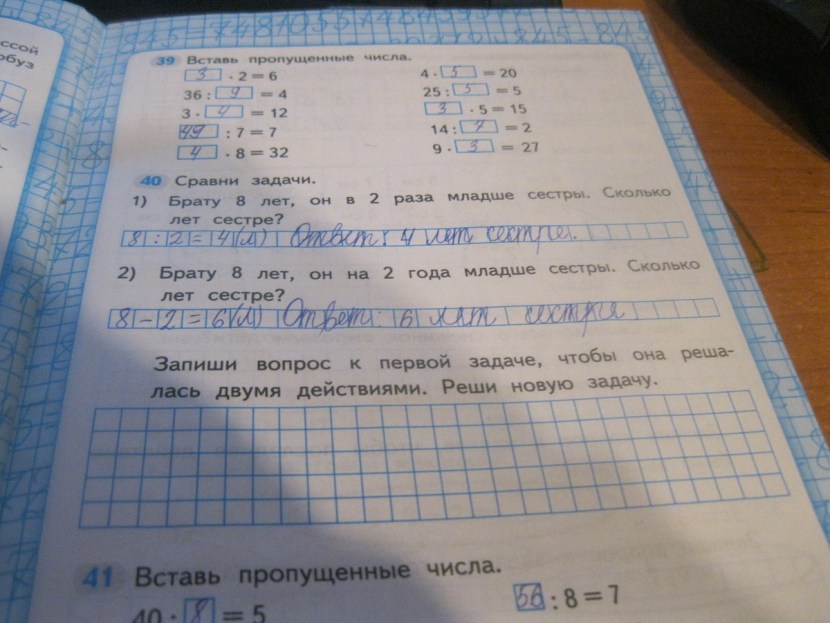 ссой
обуз
39 Вставь пропущенные числа.
3 · 2 = 6 4 · 5 = 20
36 : 9 = 4 25 : 5 = 5
3 · 4 = 12 3 · 5 = 15
49 : 7 = 7 14 : 7 = 2
4 · 8 = 32 9 · 3 = 27
40 Сравни задачи.
1) Брату 8 лет, он в 2 раза младше сестры. Сколько
лет сестре?
8 : 2 = 4 (л) Ответ: 4 лет сестре.
2) Брату 8 лет, он на 2 года младше сестры. Сколько
лет сестре?
8 - 2 = 6 (л) Ответ: 6 лет сестре
Запиши вопрос к первой задаче, чтобы она реша-
лась двумя действиями. Реши новую задачу.
41 Вставь пропущенные числа.
40 : 8 = 5 56 : 8 = 7